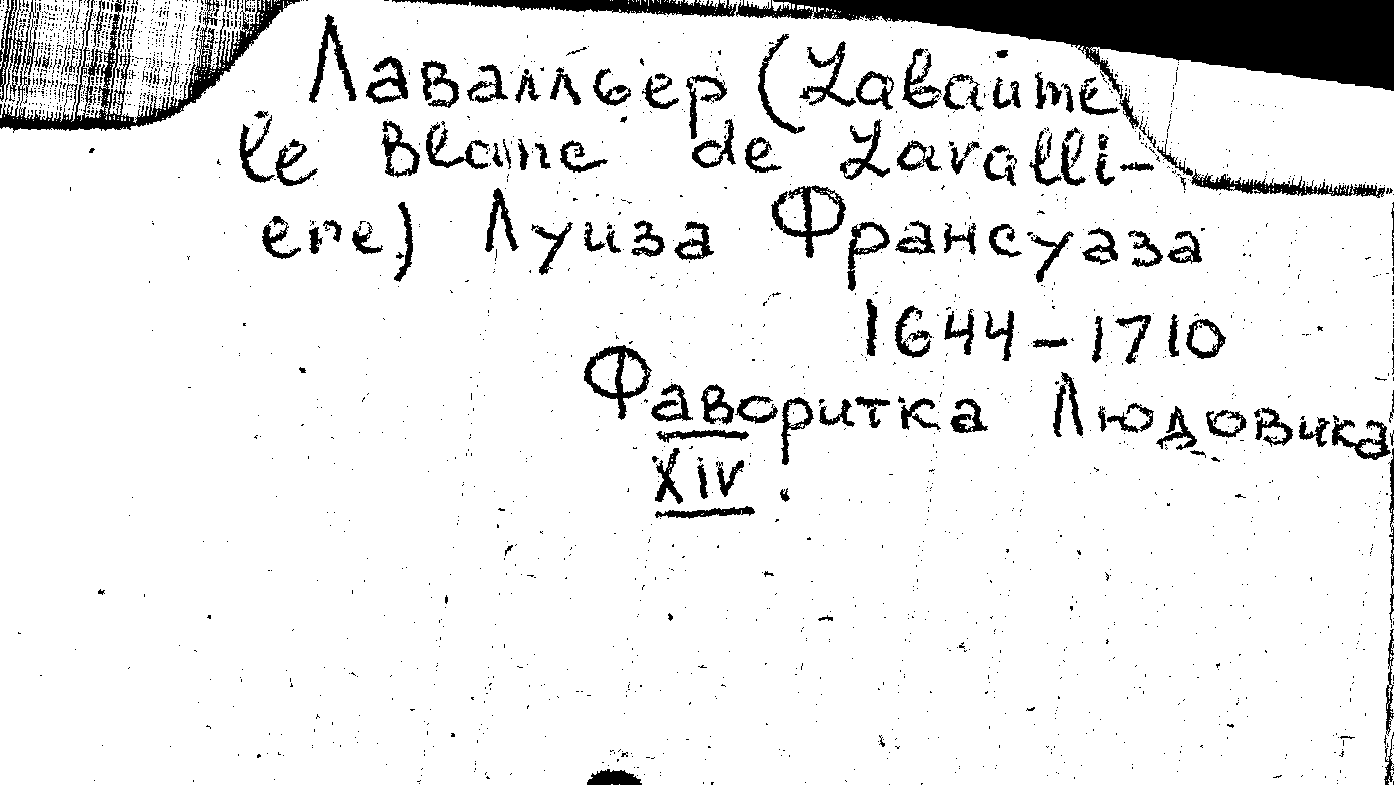 Лавалльер (Labaume
le Blanc de Lavalli-
ere) Луиза Франсуаза
1644-1710
Фаворитка Людовика
XIV.